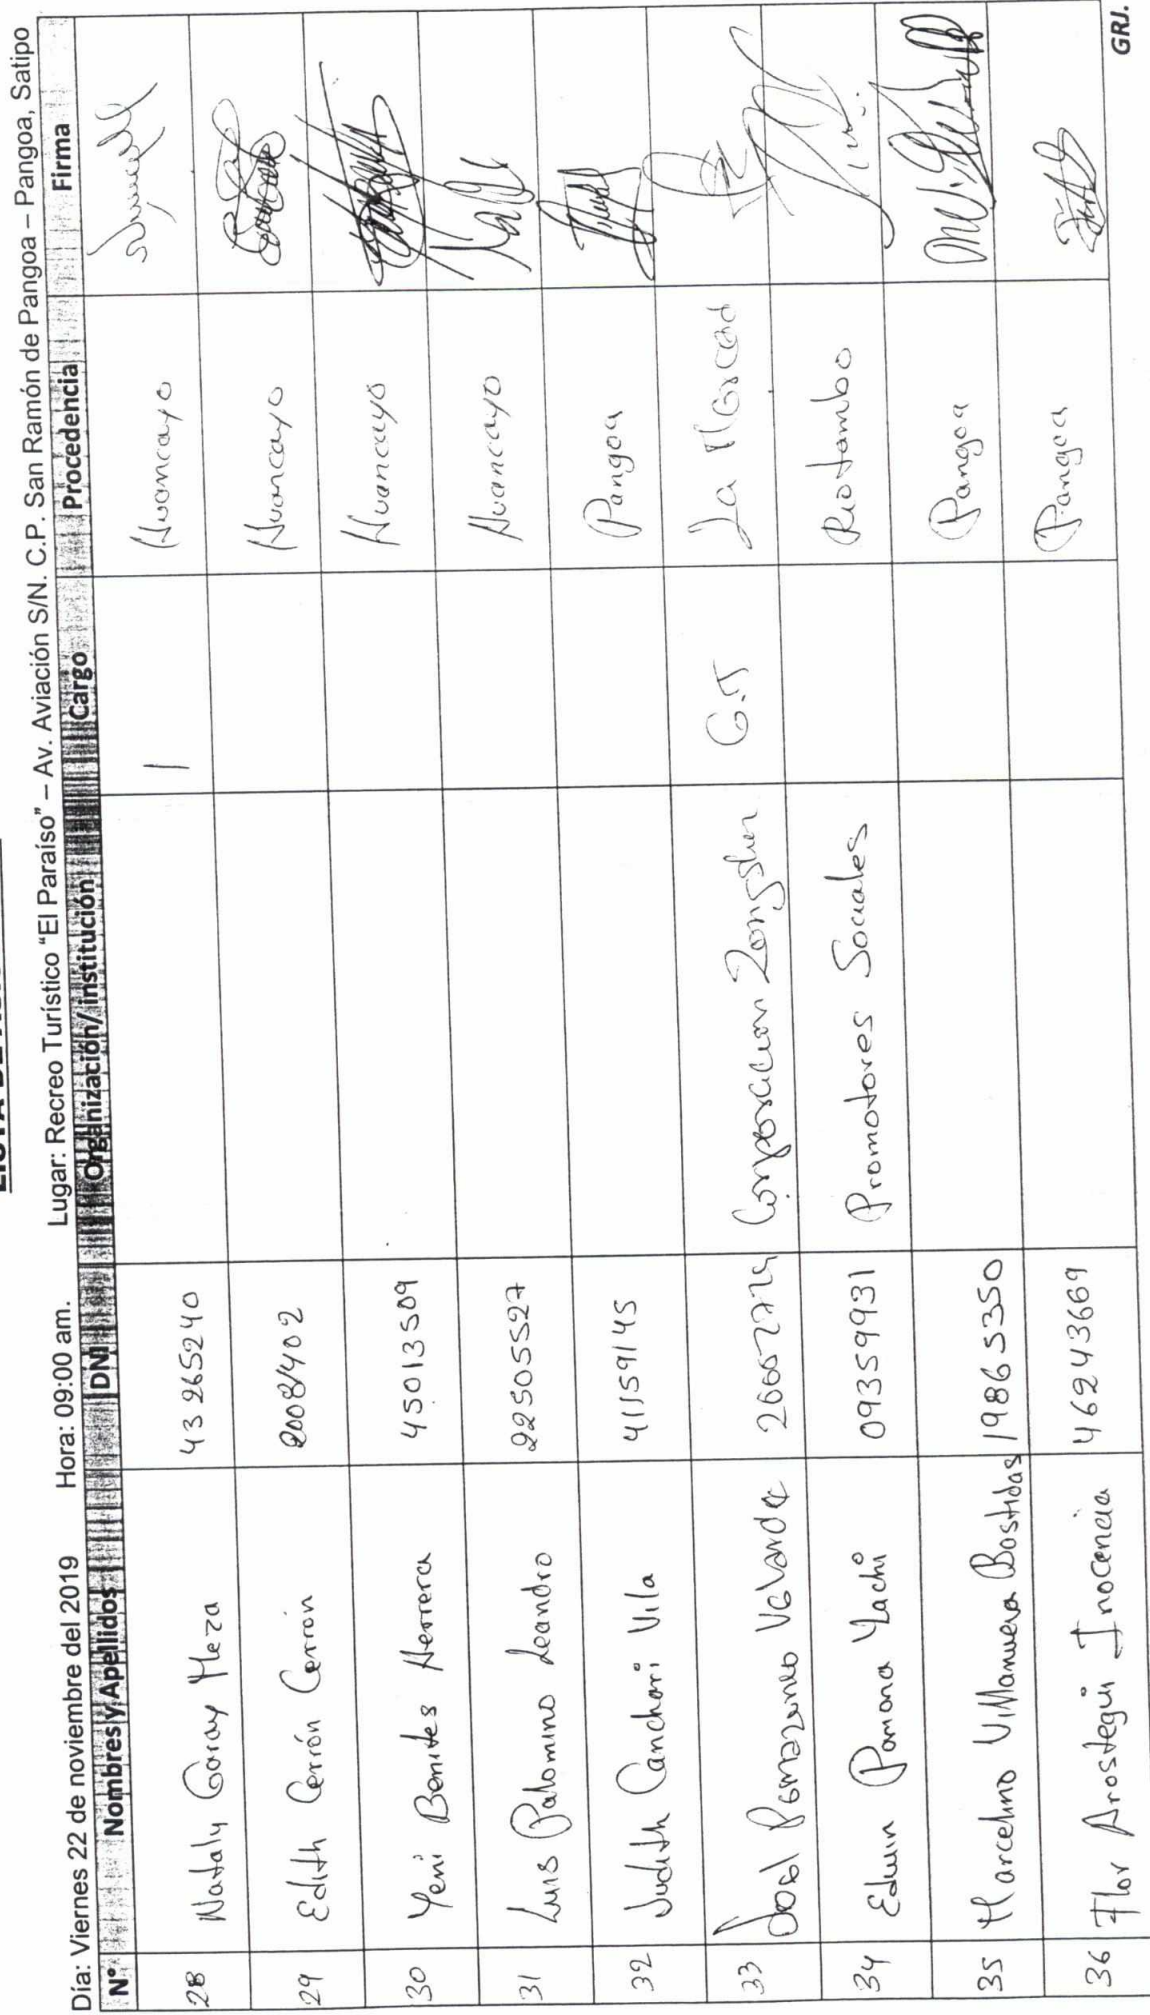 Día: Viernes 22 de noviembre del 2019 Hora: 09:00 am. Lugar: Recreo Turístico "El Paraíso" – Av. Aviación S/N. C.P. San Ramón de Pangoa – Pangoa, Satipo
N° Nombres y Apellidos DNI Organización/institución Cargo Procedencia Firma
28 Nataly Garay Meza 43265240 Huancayo
29 Edith Cerrón Cerrón 20081402 Huancayo
30 Yeni Benites Herrera 45013509 Huancayo
31 Luis Palomino Leandro 22505527 Huancayo
32 Judith Canchari Vila 41159145 Pangoa
33 Velarde Corporacion G.T La Merced
34 Edwin Pomona Yachi 09359931 Promotores Sociales Riotambo
35 Marcelino Villanueva Bastidas 19865350 Pangoa
36 Flor Arostegui Inocencia 46243669 Pangoa
GRJ.